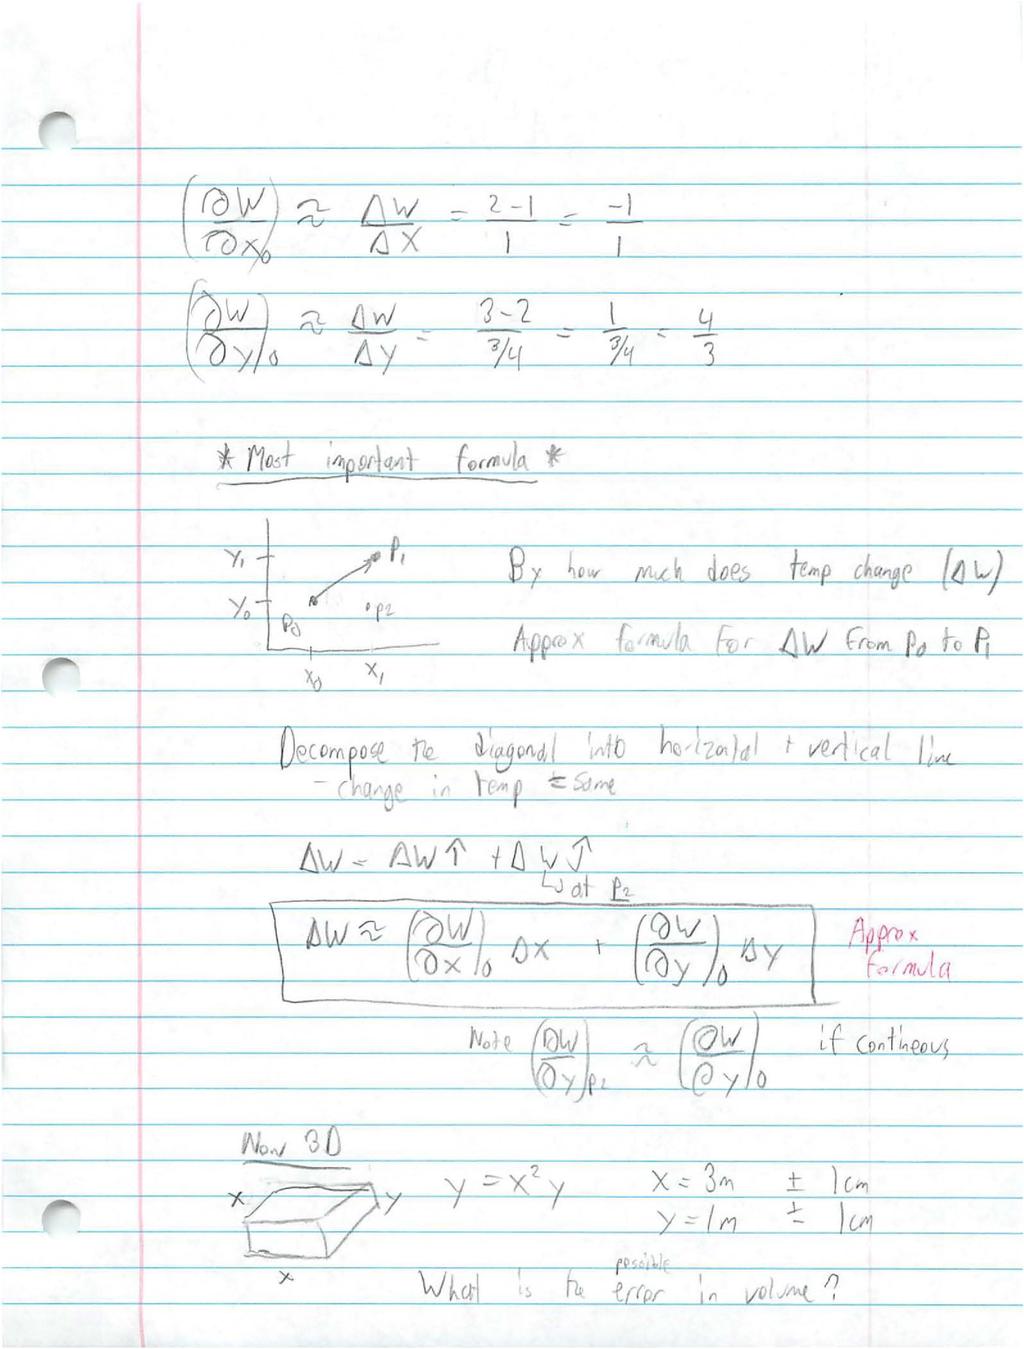 (∂W/∂x)₀ ≈ ΔW/ΔX = 2-1/1 = -1/1
(∂W/∂y)₀ ≈ ΔW/ΔY = 3-2/¾ = 1/¾ = 4/3
* Most important formula *
Y₁ P₁
By how much does temp change (ΔW)
Y₀ P₀ P2
Approx formula for ΔW from P₀ to P₁
X₀ X₁
Decompose the diagonal into horizontal + vertical line
- change in temp = same
ΔW = ΔW↑ + ΔW↑
↳ at P₂
ΔW ≈ (∂W/∂x)₀ ΔX + (∂W/∂y)₀ ΔY
Approx
formula
Note (∂W/∂y)P₂ ≈ (∂W/∂y)₀ if contineous
Now 3D
x y
y = x²y
x = 3m ± 1cm
y = 1m ± 1cm
x
What is the possible error in volume?